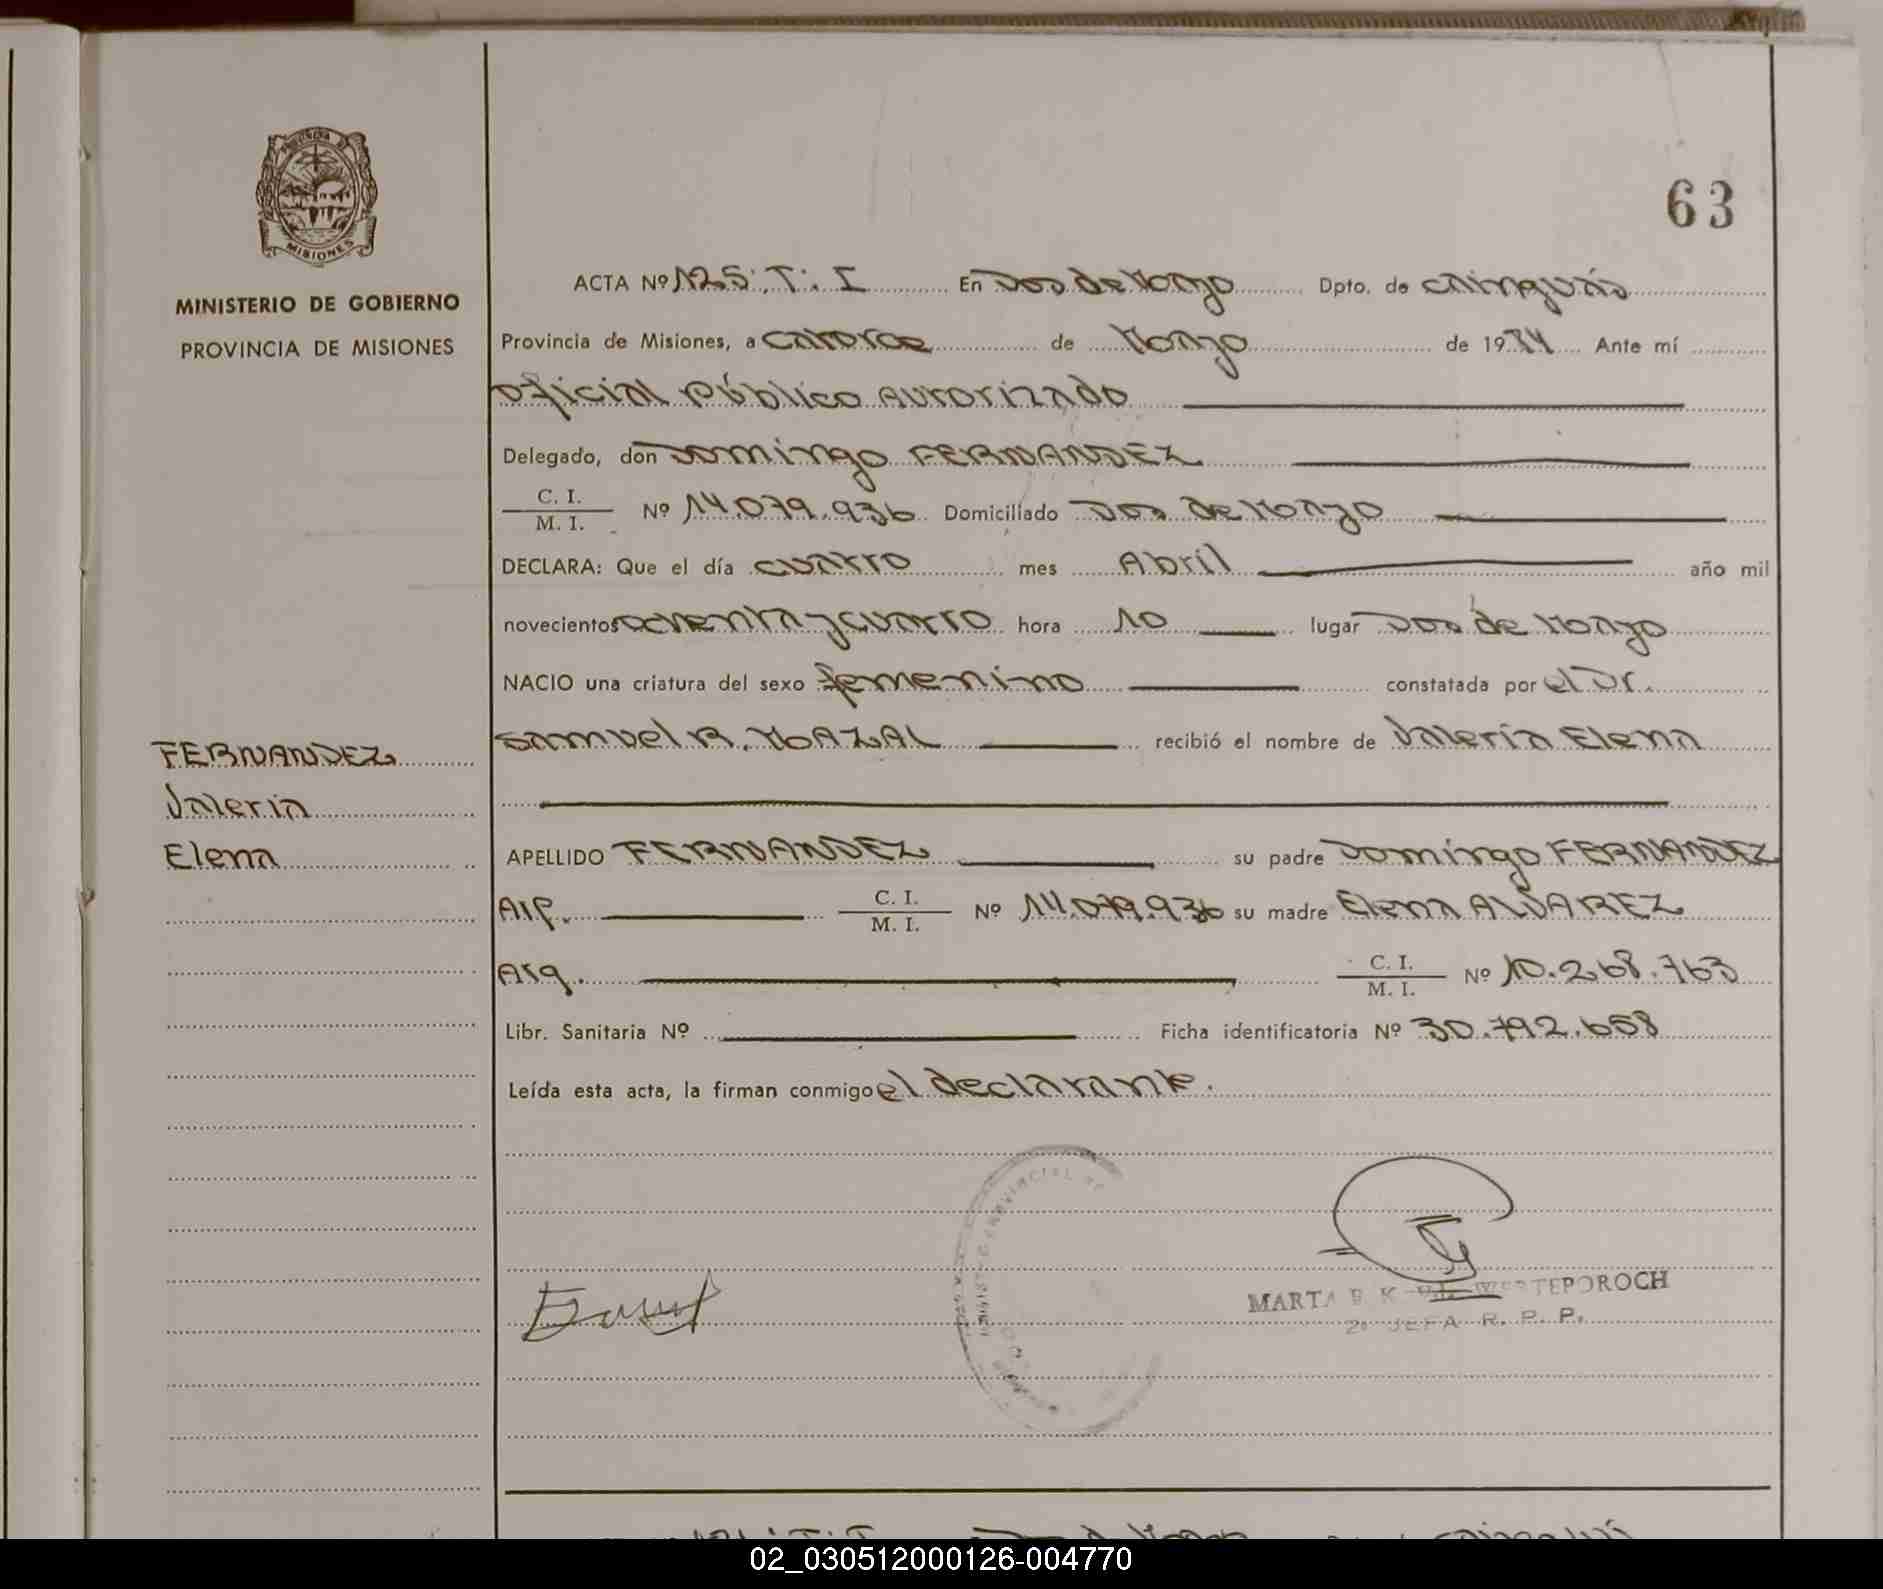 63
MISIONES
MINISTERIO DE GOBIERNO
PROVINCIA DE MISIONES
FERNANDEZ
Valeria
Elena
ACTA Nº 125: T: I En Dos de Mayo Dpto. de Cainguás
Provincia de Misiones, a catorce de Mayo de 1984 Ante mí
Oficial Público Autorizado
Delegado, don Domingo FERNANDEZ
C. I. / M. I. Nº 14.079.936 Domiciliado Dos de Mayo
DECLARA: Que el día cuatro mes Abril año mil
novecientos ochenta y cuatro hora 10 lugar Dos de Mayo
NACIO una criatura del sexo femenino constatada por el Dr.
Samuel R. MAZAL recibió el nombre de Valeria Elena
APELLIDO FERNANDEZ su padre Domingo FERNANDEZ
Arg. C. I. / M. I. Nº 14.079.936 su madre Elena ALVAREZ
Arg. C. I. / M. I. Nº 10.268.763
Libr. Sanitaria Nº Ficha identificatoria Nº 30.792.658
Leída esta acta, la firman conmigo el declarante.
PROVINCIAL DE
MARTA E. K. WERTEPOROCH
2º JEFA R. P. P.
02_030512000126-004770